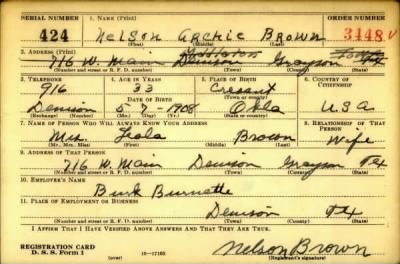 SERIAL NUMBER 1. NAME (Print) ORDER NUMBER
424 Nelson Archie Brown 3448
(First) (Middle) (Last)
3. ADDRESS (Print)
716 W. Main Denison Grayson Tex
(Number and street or R. F. D. number) (Town) (County) (State)
3. TELEPHONE 4. AGE IN YEARS 5. PLACE OF BIRTH 6. COUNTRY OF CITIZENSHIP
916 33 Cresant
DATE OF BIRTH (Town or county)
Denison 5-7-1908 Okla USA
(Exchange) (Number) (Mo.) (Day) (Yr.) (State or country)
7. NAME OF PERSON WHO WILL ALWAYS KNOW YOUR ADDRESS 8. RELATIONSHIP OF THAT PERSON
Mrs. Brown Wife
(Mr., Mrs., Miss) (First) (Middle) (Last)
9. ADDRESS OF THAT PERSON
716 W. Main Denison Grayson Tex
(Number and street or R. F. D. number) (Town) (County) (State)
10. EMPLOYER'S NAME
Burk Burnette
11. PLACE OF EMPLOYMENT OR BUSINESS
Denison Tex
(Number and street or R. F. D. number) (Town) (County) (State)
I AFFIRM THAT I HAVE VERIFIED ABOVE ANSWERS AND THAT THEY ARE TRUE.
REGISTRATION CARD
D. S. S. Form 1 16-17105 Nelson Brown
(over) (Registrant's signature)